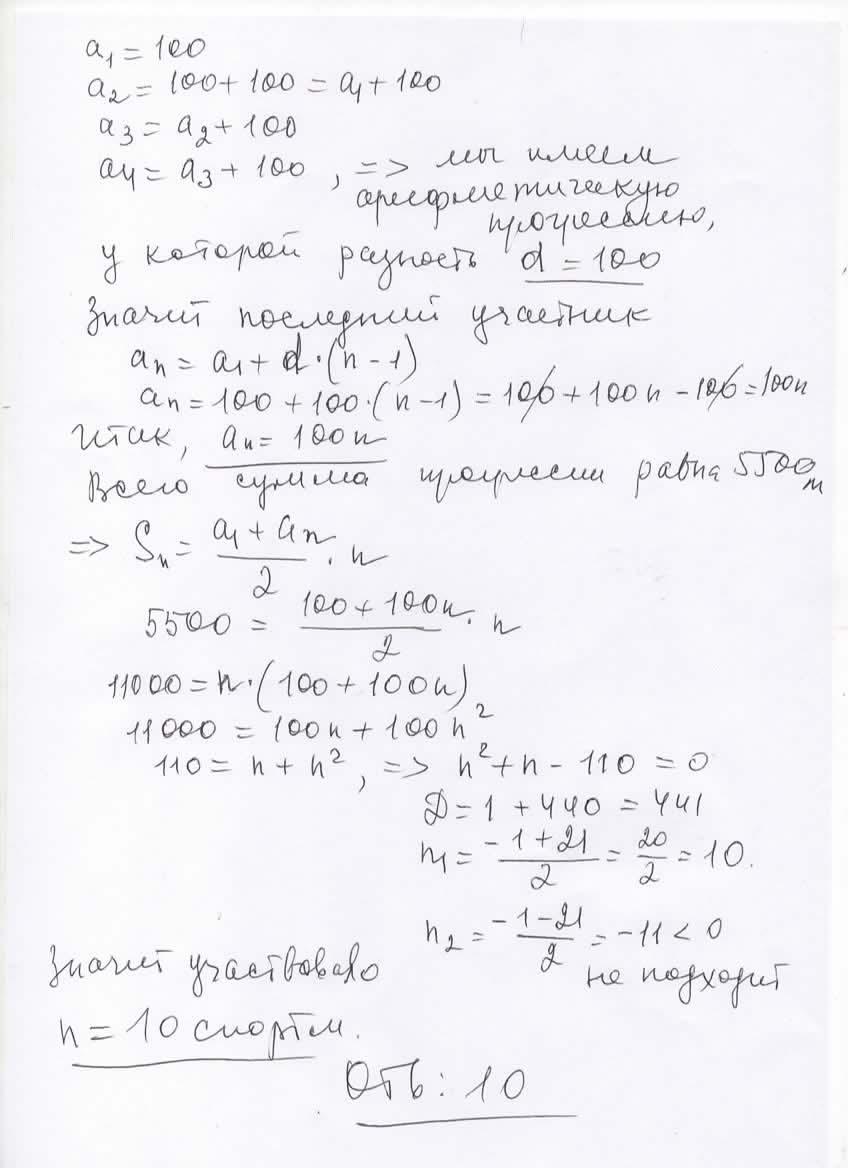 a₁ = 100
a₂ = 100 + 100 = a₁ + 100
a₃ = a₂ + 100
a₄ = a₃ + 100 , => мы имеем
арифметическую
прогрессию,
у которой разность d = 100
Значит последний участник
aₙ = a₁ + d·(n - 1)
aₙ = 100 + 100·(n - 1) = 100 + 100n - 100 = 100n
Итак, aₙ = 100n
Всего сумма прогрессии равна 5500 м
=> Sₙ = (a₁ + aₙ)/2 · n
5500 = (100 + 100n)/2 · n
11000 = n·(100 + 100n)
11000 = 100n + 100n²
110 = n + n² , => n² + n - 110 = 0
D = 1 + 440 = 441
n₁ = (-1 + 21)/2 = 20/2 = 10.
n₂ = (-1 - 21)/2 = -11 < 0
не подходит
Значит участвовало
n = 10 спортсм.
Отв: 10